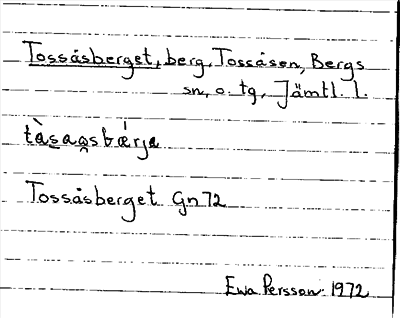 Tossåsberget, berg, Tossåsen, Bergs
sn, o. tg, Jämtl. l.
tàsaǫsbǽrjа
Tossåsberget Gn 72
Ewa Persson 1972